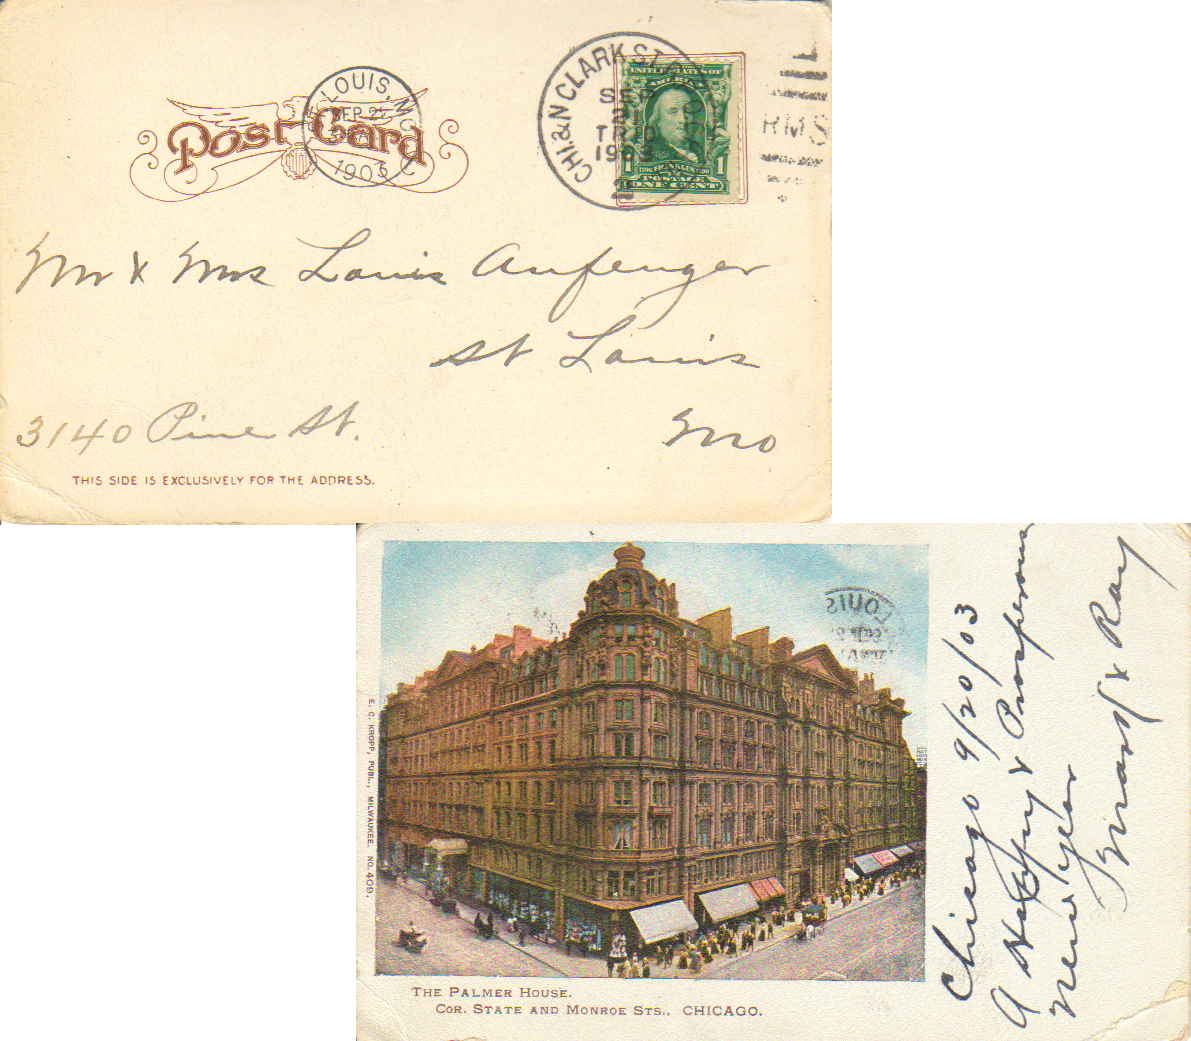 Post Card
ST. LOUIS, MO.
SEP 21
1903
CHI. & N CLARK ST.
SEP
TR
1903
2
R.M.S
UNITED STATES OF
AMERICA
1
FRANKLIN
1
POSTAGE
ONE CENT
Mr & Mrs Louis Aufenger
St Louis
3140 Pine St.
Mo
THIS SIDE IS EXCLUSIVELY FOR THE ADDRESS.
E. C. KROPP, PUBL., MILWAUKEE. NO. 409.
LOUIS
THE PALMER HOUSE.
COR. STATE AND MONROE STS., CHICAGO.
Chicago 9/20/03
A Happy & Prosperous
New Year
& Ray